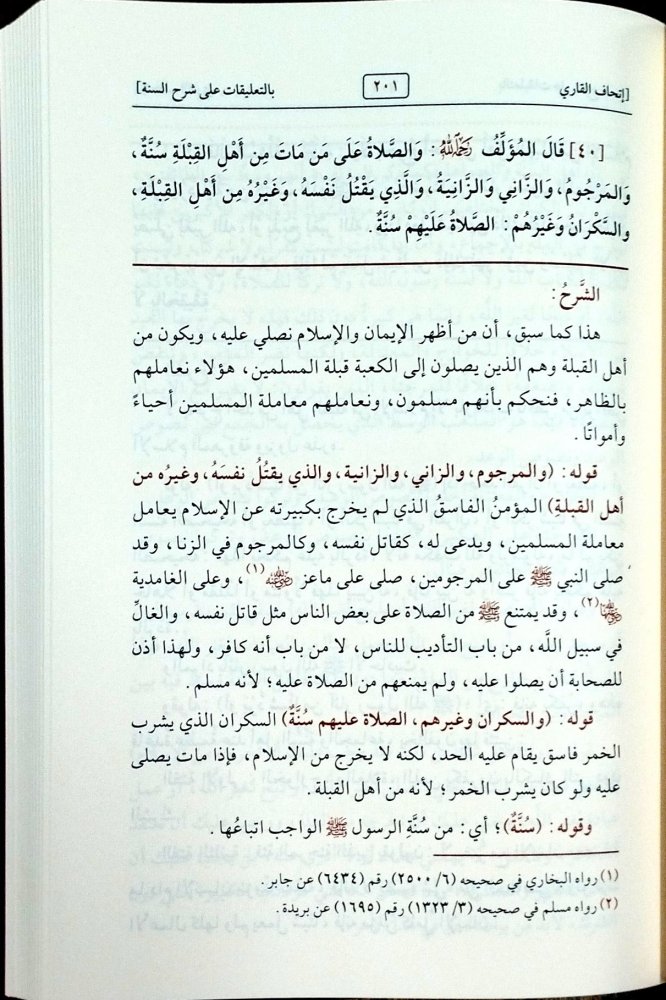 [إتحاف القاري
٢٠١
بالتعليقات على شرح السنة]
[٤٠] قَالَ المُؤَلِّفُ رَحِمَهُ اللَّهُ: وَالصَّلاةُ عَلَى مَن مَاتَ مِن أَهْلِ القِبْلَةِ سُنَّةٌ،
وَالمَرْجُومُ، وَالزَّانِي وَالزَّانِيَةُ، وَالَّذِي يَقْتُلُ نَفْسَهُ، وَغَيْرُهُ مِن أَهْلِ القِبْلَةِ،
وَالسَّكْرَانُ وَغَيْرُهُمْ: الصَّلاةُ عَلَيْهِمْ سُنَّةٌ.
الشَّرحُ:
هذا كما سبق، أن من أظهر الإيمان والإسلام نصلي عليه، ويكون من
أهل القبلة وهم الذين يصلون إلى الكعبة قبلة المسلمين، هؤلاء نعاملهم
بالظاهر، فنحكم بأنهم مسلمون، ونعاملهم معاملة المسلمين أحياءً
وأمواتًا.
قوله: (والمرجوم، والزاني، والزانية، والذي يقتُلُ نفسَهُ، وغيرُه من
أهل القبلةِ) المؤمنُ الفاسقُ الذي لم يخرج بكبيرته عن الإسلام يعامل
معاملة المسلمين، ويدعى له، كقاتل نفسه، وكالمرجوم في الزنا، وقد
صلى النبي ﷺ على المرجومين، صلى على ماعز رضي الله عنه(١)، وعلى الغامدية
رضي الله عنها(٢)، وقد يمتنع ﷺ من الصلاة على بعض الناس مثل قاتل نفسه، والغالِّ
في سبيل اللَّه، من باب التأديب للناس، لا من باب أنه كافر، ولهذا أذن
للصحابة أن يصلوا عليه، ولم يمنعهم من الصلاة عليه؛ لأنه مسلم.
قوله: (والسكران وغيرهم، الصلاة عليهم سُنَّةٌ) السكران الذي يشرب
الخمر فاسق يقام عليه الحد، لكنه لا يخرج من الإسلام، فإذا مات يصلى
عليه ولو كان يشرب الخمر؛ لأنه من أهل القبلة.
وقوله: (سُنَّةٌ)؛ أي: من سُنَّةِ الرسول ﷺ الواجب اتباعُها.
(١) رواه البخاري في صحيحه (٦/ ٢٥٠٠) رقم (٦٤٣٤) عن جابر.
(٢) رواه مسلم في صحيحه (٣/ ١٣٢٣) رقم (١٦٩٥) عن بريدة.